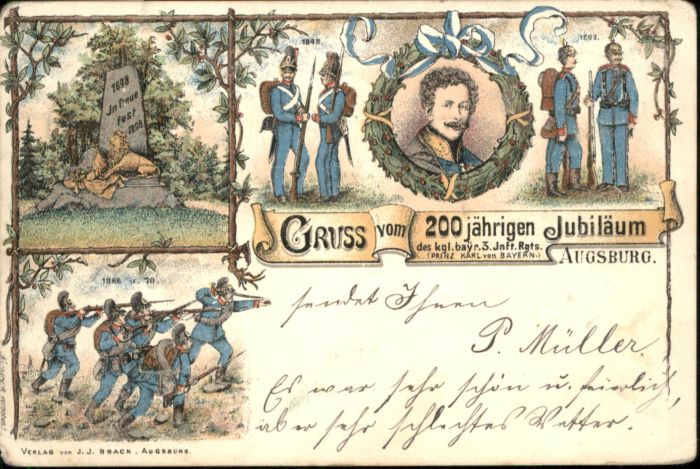 1698
In Treue
fest
1898
1848.
1898.
GRUSS vom 200 jährigen Jubiläum
des kgl. bayr. 3. Inft. Rgts.
(PRINZ KARL von BAYERN.)
AUGSBURG.
1866 u. 70.
sendet Ihnen
P. Müller.
Es war sehr schön u. feierlich,
aber sehr schlechtes Wetter.
VERLAG von J. J. BRACK, AUGSBURG.